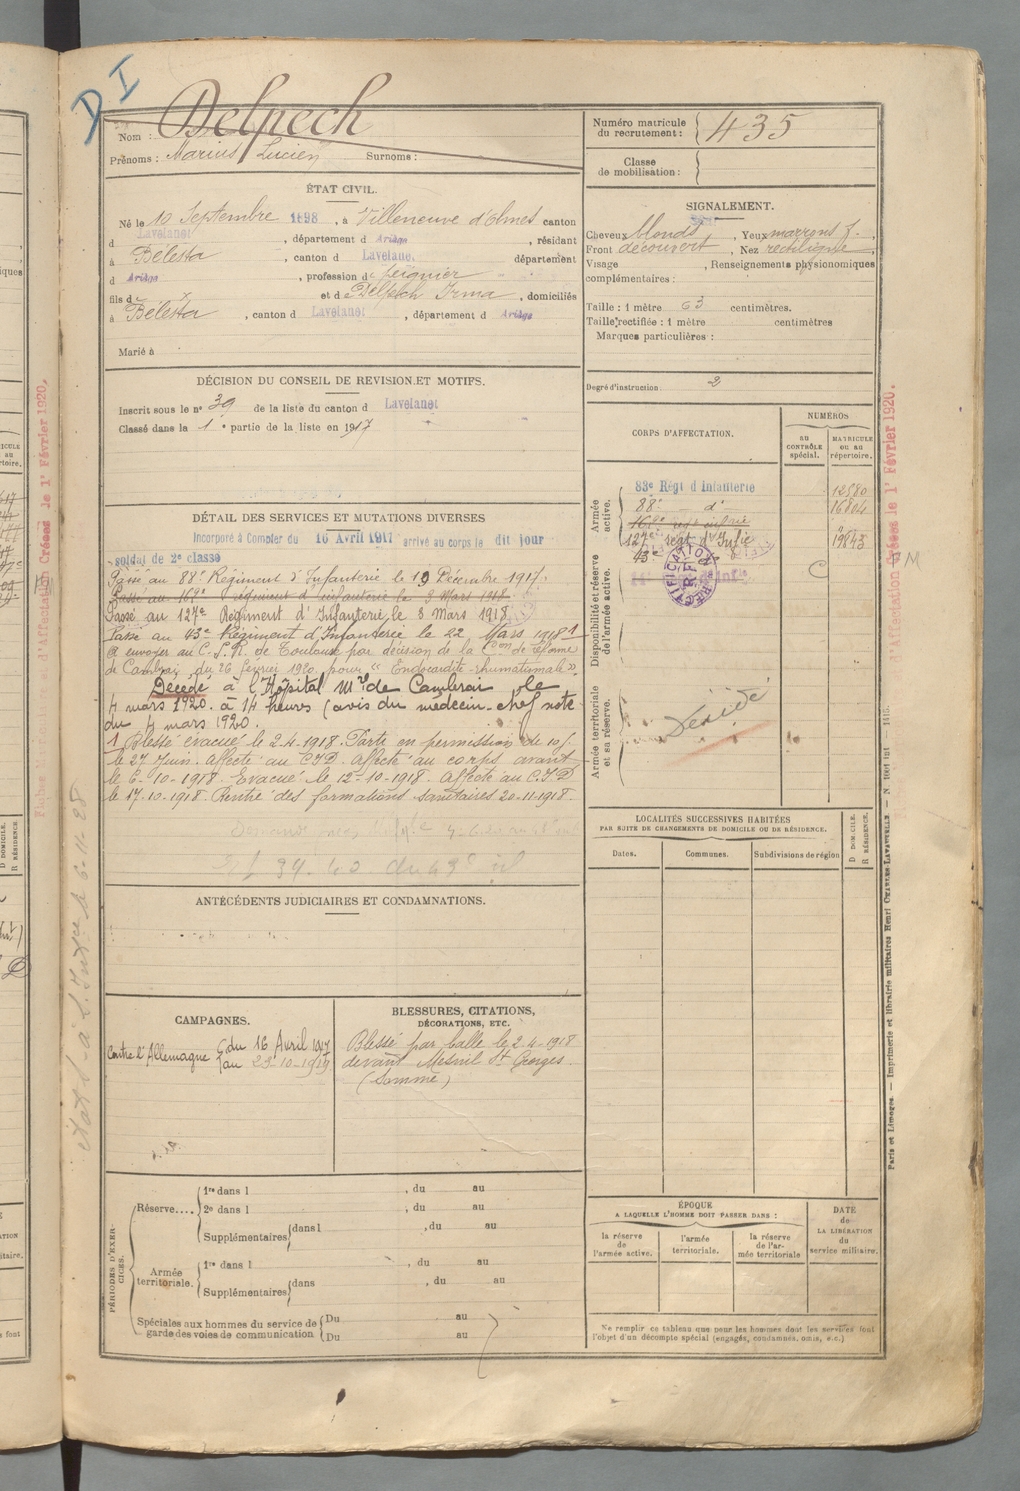 D I
Nom : Delpech
Prénoms : Marius Lucien Surnoms :
Numéro matricule du recrutement : 435
Classe de mobilisation :
ÉTAT CIVIL.
Né le 10 Septembre 1898, à Villeneuve d'Olmes canton
d Lavelanet, département d Ariège, résidant
à Bélesta, canton d Lavelanet département
d Ariège, profession de peignier
fils d x et de Delpech Irma, domiciliés
à Bélesta, canton d Lavelanet, département d Ariège
Marié à
SIGNALEMENT.
Cheveux blonds, Yeux marrons f.
Front découvert, Nez rectiligne
Visage , Renseignements physionomiques
complémentaires :
Taille : 1 mètre 63 centimètres.
Taille rectifiée : 1 mètre centimètres
Marques particulières :
Degré d'instruction. 2
DÉCISION DU CONSEIL DE REVISION ET MOTIFS.
Inscrit sous le n° 39 de la liste du canton d Lavelanet
Classé dans la 1e partie de la liste en 1917
CORPS D'AFFECTATION.
NUMÉROS
AU CONTRÔLE spécial.
MATRICULE ou au répertoire.
Armée active.
83e Régt d Infanterie 12580
88e d° 16804
168e regt infrie
127e regt d'Infie 19843
43e d°
RECTIFICATION
R.F.
Disponibilité et réserve de l'armée active.
C
Armée territoriale et sa réserve.
Décédé
DÉTAIL DES SERVICES ET MUTATIONS DIVERSES
Incorporé à Compter du 16 Avril 1917 arrivé au corps le dit jour
soldat de 2e classe
Passé au 88e Régiment d'Infanterie le 19 Décembre 1917.
Passé au 168e régiment d'infanterie le 3 Mars 1918
Passé au 127e Régiment d'Infanterie le 3 Mars 1918
Passé au 43e Régiment d'Infanterie le 22 Mars 1918 1
A envoyer au C.S.R. de Toulouse par décision de la Con de réforme
de Cambrai du 26 février 1920 pour "Endocardite rhumatismale"
Décédé à l'Hôpital Mre de Cambrai le
4 mars 1920 à 14 heures (avis du médecin-chef note
du 4 mars 1920.
1 Blessé évacué le 2-4-1918. Parti en permission de 10 j.
le 27 Juin. affecté au CID. Affecté au corps avant
le 6-10-1918. Evacué le 12-10-1918. Affecté au C.I.D
le 17-10-1918. Rentré des formations sanitaires 20-11-1918.
LOCALITÉS SUCCESSIVES HABITÉES
PAR SUITE DE CHANGEMENTS DE DOMICILE OU DE RÉSIDENCE.
Dates. Communes. Subdivisions de région D DOMICILE. R RÉSIDENCE.
ANTÉCÉDENTS JUDICIAIRES ET CONDAMNATIONS.
CAMPAGNES.
Contre l'Allemagne du 16 Avril 1917
au 23-10-1919
BLESSURES, CITATIONS, DÉCORATIONS, ETC.
Blessé par balle le 2-4-1918
devant Mesnil St Georges
(Somme)
PÉRIODES D'EXERCICES.
Réserve.... 1re dans l , du au
2e dans l , du au
Supplémentaires dans l , du au
Armée territoriale. 1re dans l , du au
Supplémentaires dans , du au
Spéciales aux hommes du service de garde des voies de communication
Du au
Du au
ÉPOQUE
A LAQUELLE L'HOMME DOIT PASSER DANS :
la réserve de l'armée active.
l'armée territoriale.
la réserve de l'armée territoriale
DATE de LA LIBÉRATION du service militaire.
Ne remplir ce tableau que pour les hommes dont les services font
l'objet d'un décompte spécial (engagés, condamnés, omis, etc.)
Paris et Limoges. — Imprimerie et librairie militaires Henri CHARLES-LAVAUZELLE.
d'Affectation Créées le 1r Février 1920.